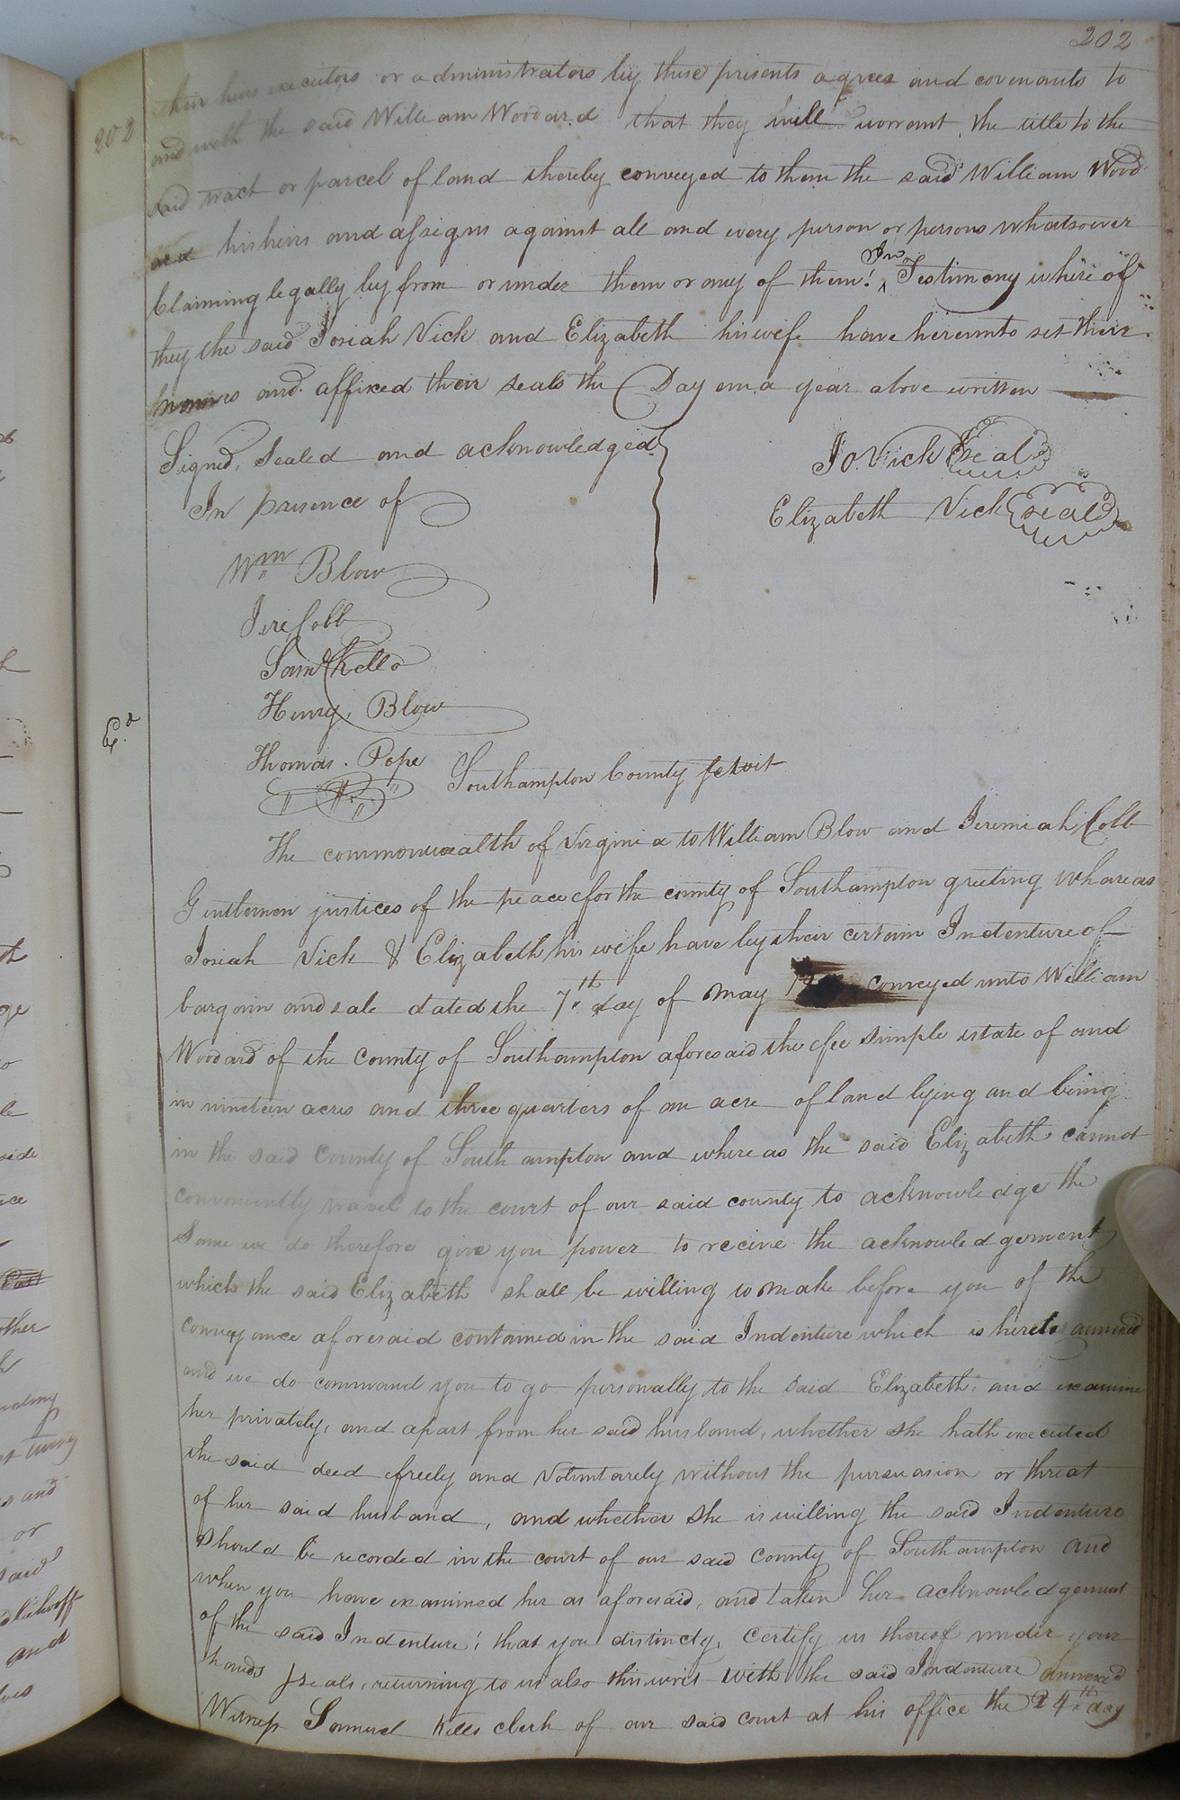 202
202
their heirs executors or administrators by these presents agrees and covenants to
and with the said William Woodard that they will warrant the title to the
said tract or parcel of land thereby conveyed to them the said William Wood
ard his heirs and assigns against all and every person or persons whatsoever
Claiming legally by from or under them or any of them! In Testimony where of
they the said Josiah Vick and Elizabeth his wife have hereunto set their
and affixed their seals the Day and year above written
Signed, Sealed and acknowledged
In presence of
Jo. Vick Seal
Elizabeth Vick Seal
Wm Blow
Jere Cobb
Saml Kello
Henry Blow
Exd
Thomas. Pope
Southampton County towit
The commonwealth of Virginia to William Blow and Jeremiah Cobb
Gentlemen justices of the peace for the county of Southampton greeting whareas
Josiah Vick & Elizabeth his wife have by their certain Indenture of
bargain and sale dated the 7th day of may conveyed unto William
Woodard of the County of Southampton aforesaid the fee simple estate of and
in nineteen acres and three quarters of an acre of land lying and being
in the said County of Southampton and where as the said Elizabeth cannot
conveniently travel to the court of our said county to acknowledge the
Same we do therefore give you power to receive the acknowledgement
which the said Elizabeth shall be willing to make before you of the
conveyance aforesaid contained in the said Indenture which is hereto annexed
and we do command you to go personally to the said Elizabeth, and examine
her privately, and apart from her said husband, whether she hath executed
the said deed freely and Voluntarely without the pursuasion or threat
of her said husband, and whether she is willing the said Indenture
Should be recorded in the court of our said County of Southampton and
when you have examined her as aforesaid, and taken her acknowledgement
of the said Indenture! that you distinctly, certify us thereof under your
hands & seals, returning to us also this writ with the said Indenture annexed
Witness Samuel Kello clerk of our said court at his office the 24th day